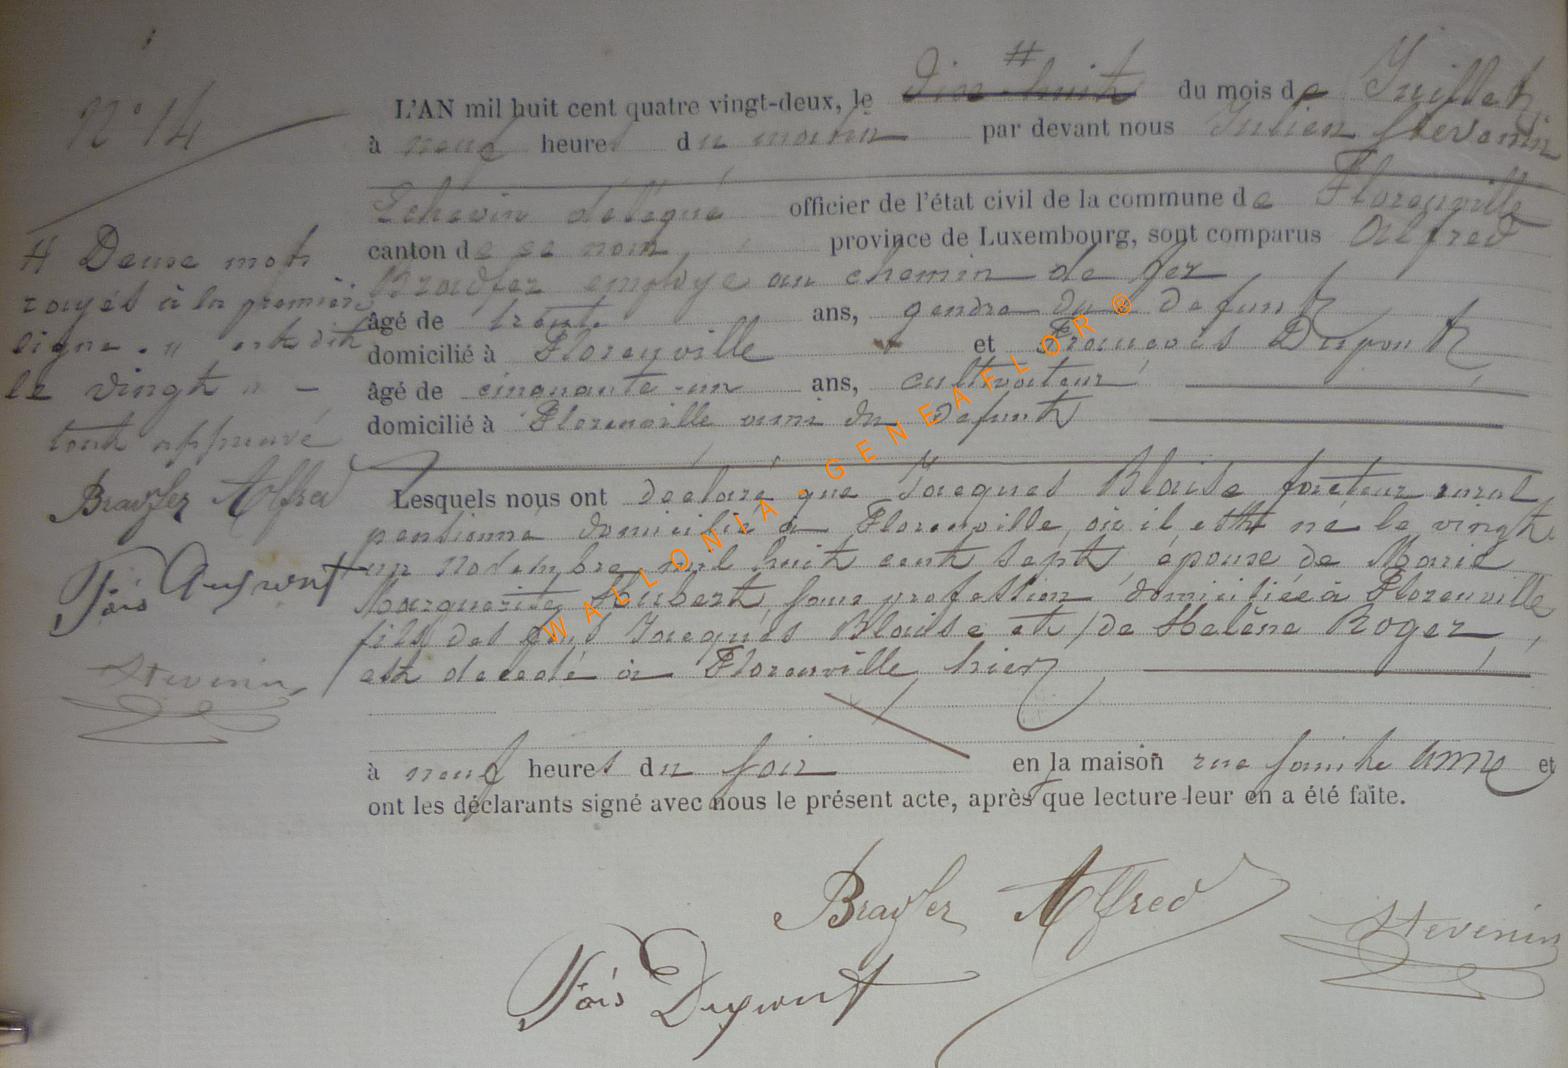 N° 14
L'AN mil huit cent quatre vingt-deux, le # dixe-huit du mois de Juillet
à neuf heures du matin par devant nous Julien Stevenin
Echevin délégué officier de l'état civil de la commune de Florenville
canton de ce nom, province de Luxembourg, sont comparus Alfred
Bradfer employé au chemin de fer
âgé de trente ans, gendre du défunt
domicilié à Florenville et François Dupont
âgé de cinquante-un ans, cultivateur
domicilié à Florenville ami du défunt
Lesquels nous ont déclaré que Jacques Blaise facteur rural
pensionné domicilié à Florenville, où il est né le vingt
un novembre mil huit cent sept, époux de Marie
Marguerite Hubert sans profession domiciliée à Florenville
fils des feus Jacques Blaise et de Helène Roger,
est décédé à Florenville hier
à neuf heures du soir en la maison rue sainte Anne et
ont les déclarants signé avec nous le présent acte, après que lecture leur en a été faite.
# Deux mots
rayés à la première
ligne. " est dit
le vingt " -
tout approuvé
Bradfer Alfred
Fçois Dupont
Stevenin
Bradfer Alfred
Stevenin
Fçois Dupont
WALLONIA-GENEAFLOR®